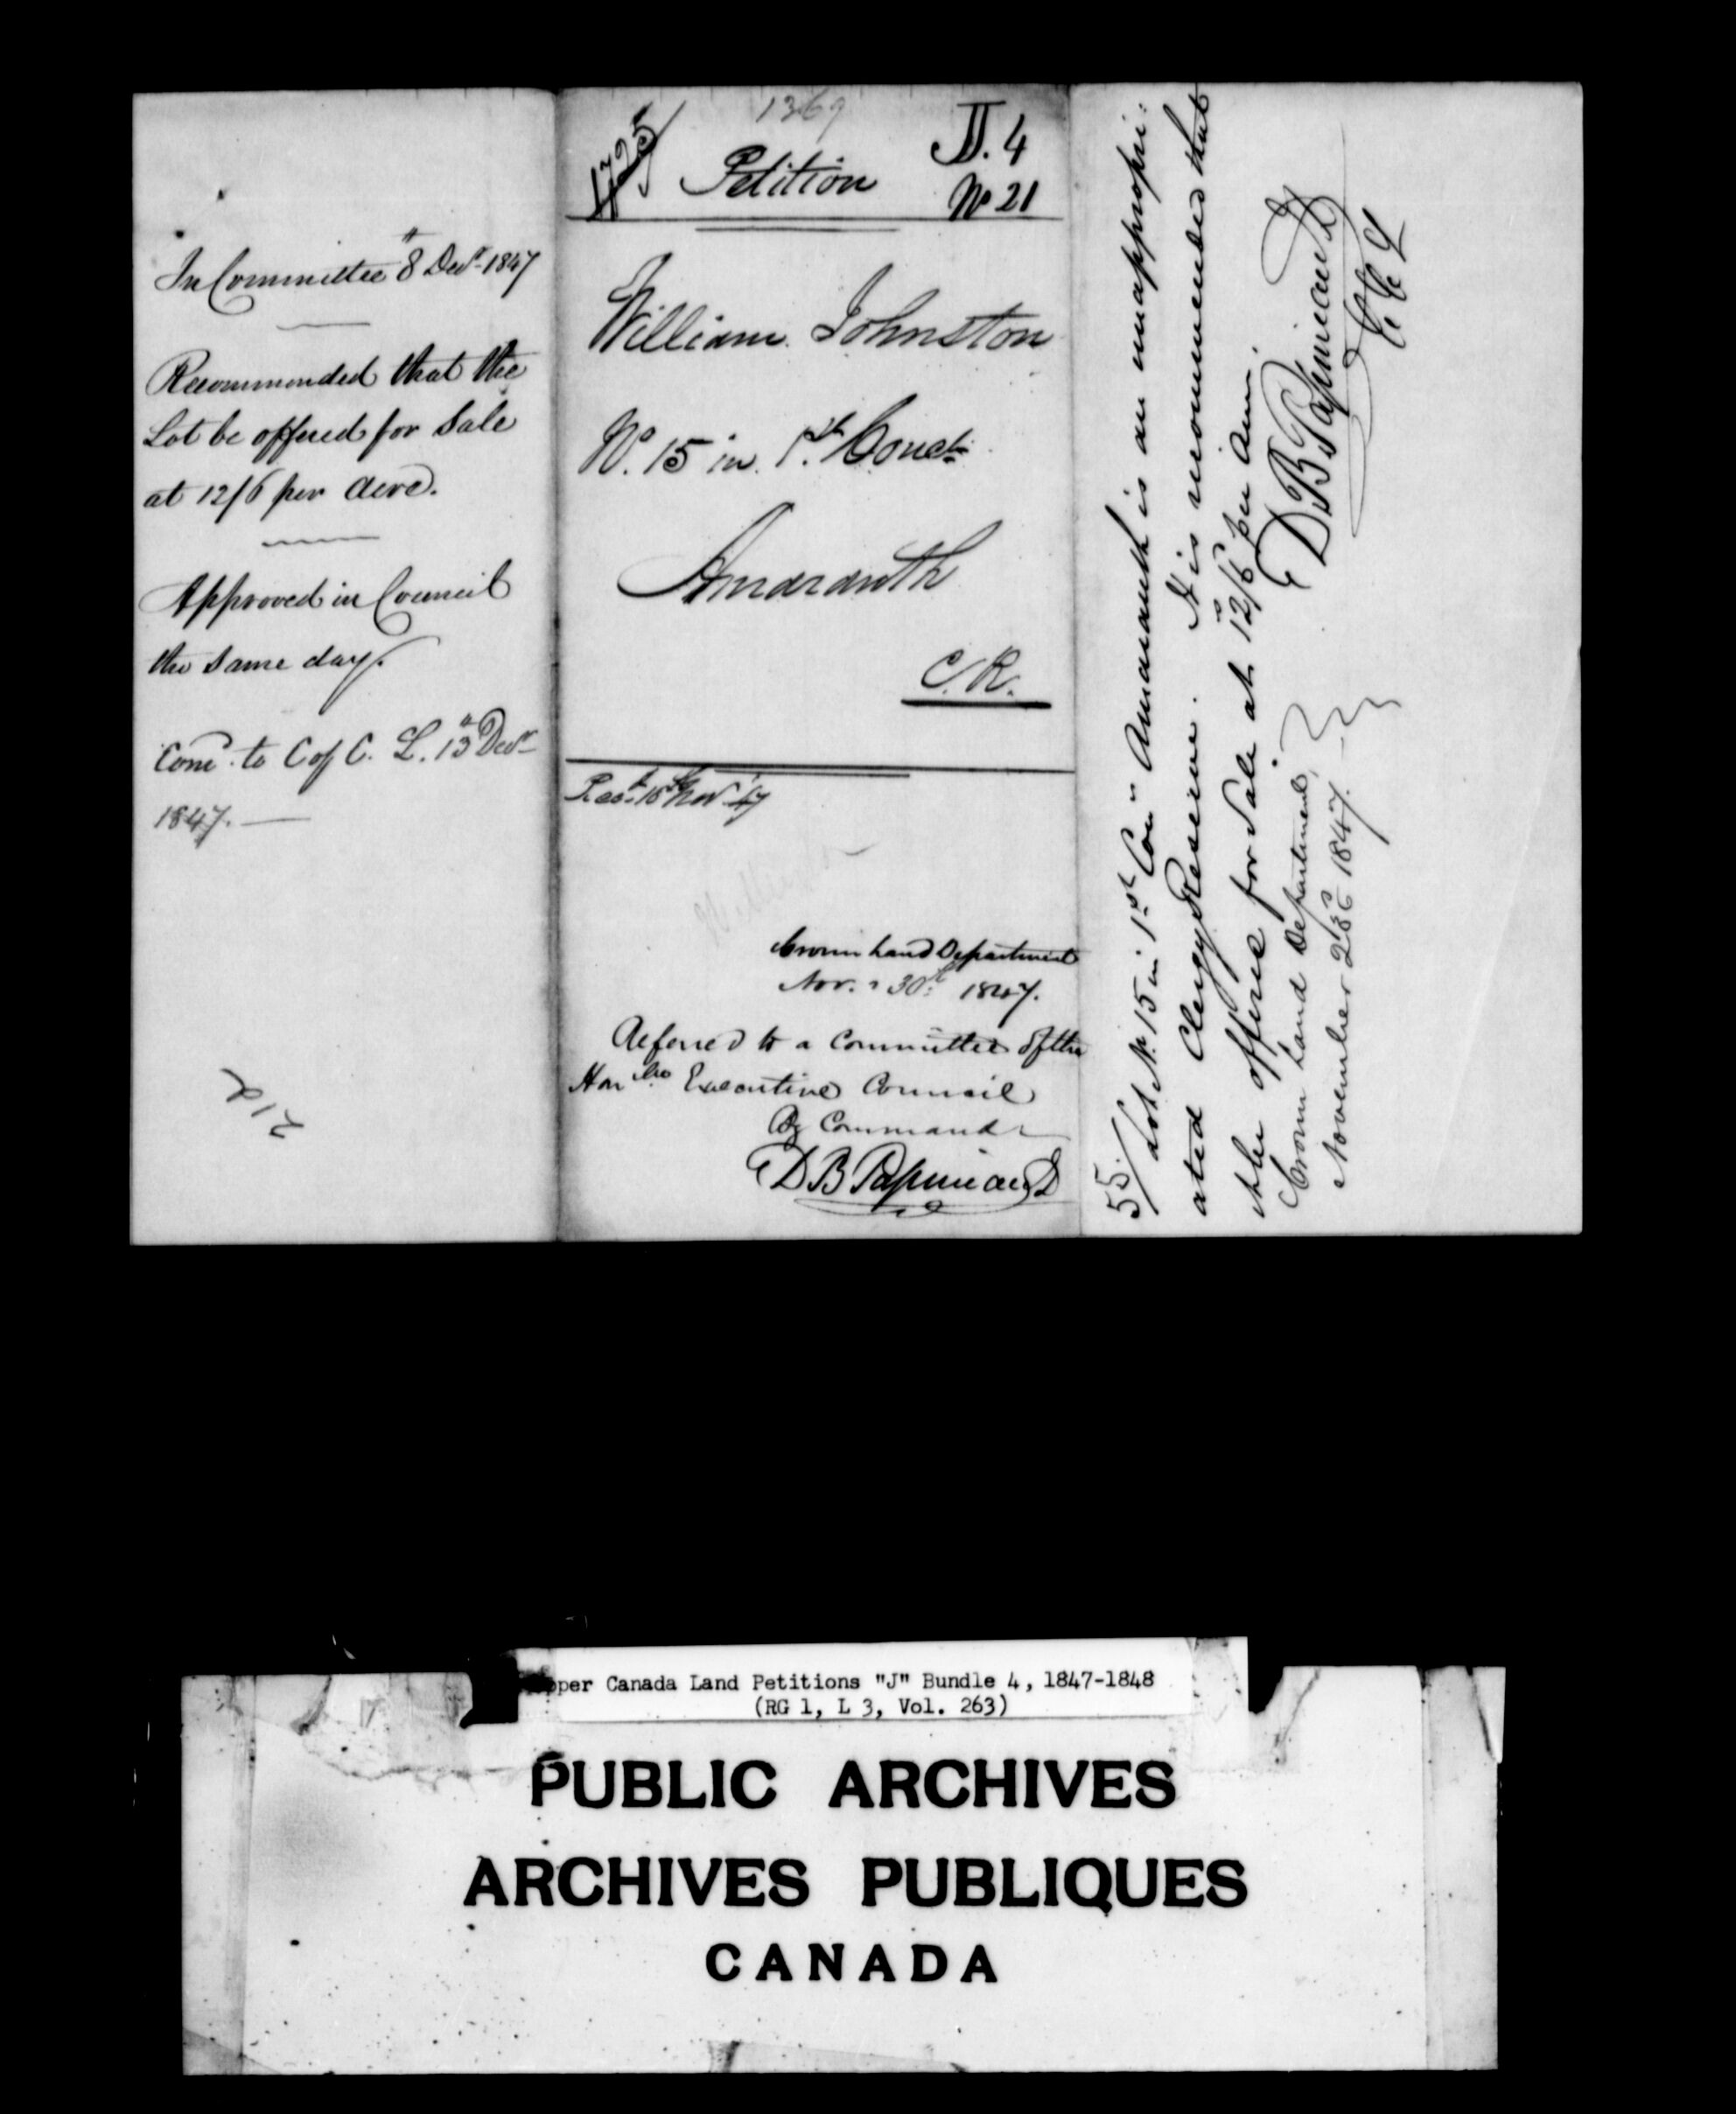 In Committee 8th Decr 1847
Recommended that the
Lot be offered for Sale
at 12/6 per Acre.
Approved in Council
the same day.
Come to C of C. L. 13th Decr
1847.
212
1369
Petition
J. 4
No 21
William Johnston
No. 15 in 1st Concn
Amaranth
C. R.
Recd 16th Nov '47
Crown Land Department
Nov. 30th 1847.
Referred to a Committee of the
Honble Executive Council
By Command
D B Papineau
55/ Lot No. 15 in 1st Con " Amaranth is an unappropri:
ated Clergy Reserve. It is recommended that
be offered for Sale at 12/6 per Acre.
Crown Land Department,
November 23d 1847.
D B Papineau
C C L
pper Canada Land Petitions "J" Bundle 4, 1847-1848
(RG 1, L 3, Vol. 263)
PUBLIC ARCHIVES
ARCHIVES PUBLIQUES
CANADA